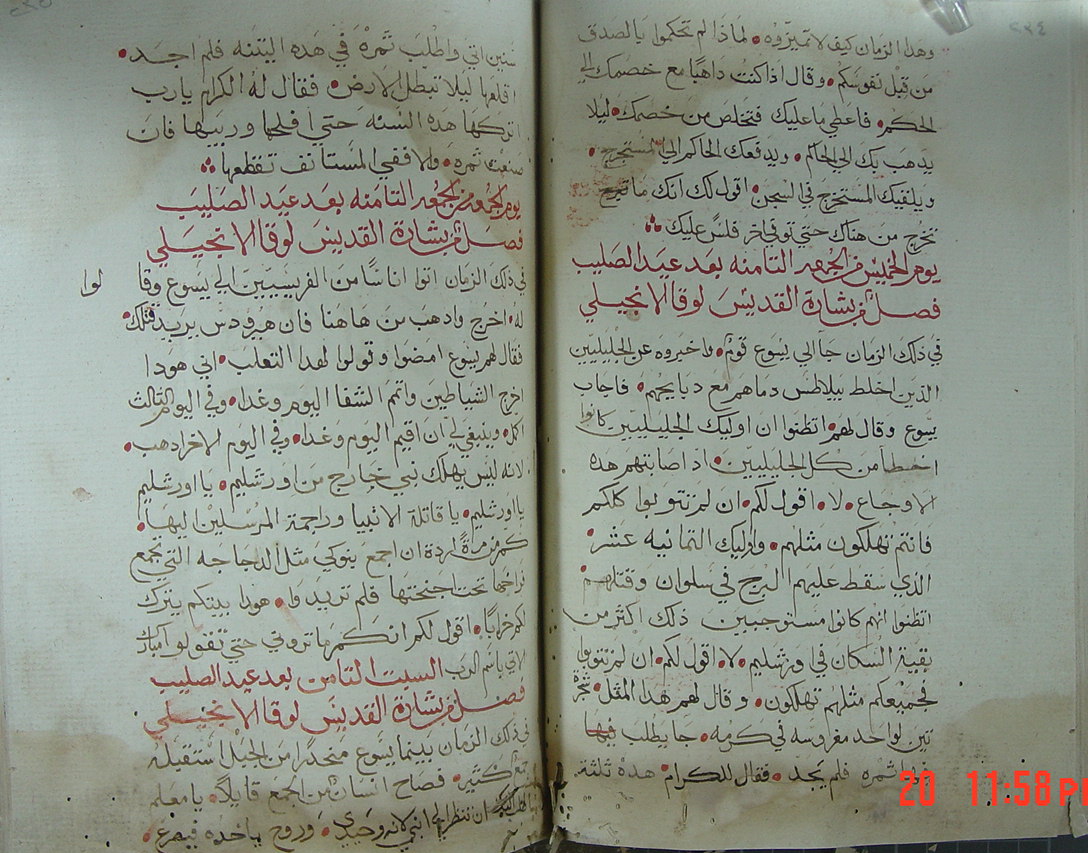 ٢٢٤
وهدا الزمان كيف لا تميزوه • لماذا لم تحكموا بالصدق
من قبل نفوسكم • وقال اذا كنت داهبًا مع خصمك الي
الحكم • فاعطي ما عليك فتخلص من خصمك • ليلا
يدهب بك الي الحاكم • ويدفعك الحاكم الي المستخرج •
ويلقيك المستخرج في السجن • اقول لك انك ما تخرج
تخرج من هناك حتي توفي اخر فلس عليك
يوم الخميس من الجمعه التامنه بعد عيد الصليب
فصل من بشارة القديس لوقا الانجيلي
في ذلك الزمان جا الي يسوع قوم • واخبروه عن الجليليين
الذين اخلط بيلاطس دماهم مع دبايحهم • فاجاب
يسوع وقال لهم • اتظنوا ان اوليك الجليليين كانوا
اخطا من كل الجليليين • اذ اصابتهم هده
الاوجاع • لا • اقول لكم • ان لم تتوبوا كلكم
فانتم تهلكون مثلهم • واوليك التمانيه عشر •
الذي سقط عليهم البرج في سلوان وقتلهم
اتظنوا انهم كانوا مستوجبين ذلك اكثر من
بقية السكان في اورشليم • لا • اقول لكم • ان لم تتوبوا
فجميعكم مثلهم تهلكون • وقال لهم هدا المتل • شجرة
تين لواحد مغروسه في كرمه • جا يطلب فيها
ثمره فلم يجد • فقال للكرام • هده ثلثة
20 11:58 PM
٢٢٥
سنين اتي واطلب ثمرة في هده التينه فلم اجد •
اقلعها ليلا تبطل الارض • فقال له الكرام يارب
اتركها هده السنه حتي افلحها وربيها فان
صنعت ثمره • والا ففي المستانف تقطعها
يوم الجمعه من الجمعه التامنه بعد عيد الصليب
فصل من بشارة القديس لوقا الانجيلي
في ذلك الزمان اتوا اناسًا من الفريسيين الي يسوع وقا
لوا
له • اخرج وادهب من هاهنا فان هيرودس يريد قتلك •
فقال لهم يسوع امضوا وقولوا لهدا التعلب • اني هودا
اخرج الشياطين واتمم الشفا اليوم وغدا • وفي اليوم التالت
اكل • وينبغي لي ان اقيم اليوم وغدا • وفي اليوم الاخر ادهب •
لانه ليس يهلك نبي خارج من اورشليم • يا اورشليم
يا اورشليم • يا قاتلة الانبيا وراجمة المرسلين اليها •
كم من مرةً اردة ان اجمع بنوكي مثل الدجاجه التي تجمع
فراخها تحت اجنحتها فلم تريدوا • هودا بيتكم يترك
لكم خرابًا • اقول لكم انكم ما تروني حتي تقولوا مبارك
الاتي باسم الرب السبت التامن بعد عيد الصليب
فصل من بشارة القديس لوقا الانجيلي
في ذلك الزمان بينما يسوع منحدرًا من الجبل استقبله
جمع كثير • فصاح انسان من الجمع قايلا • يا معلم
اطلب اليك ان تنظر الي ابني لانه وحيدي • وروح ياخده فيصرع •